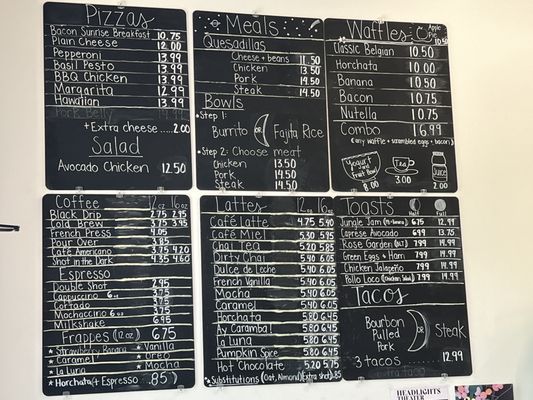 Pizzas
Bacon Sunrise Breakfast 10.75
Plain Cheese 12.00
Pepperoni 13.99
Basil Pesto 13.99
BBQ Chicken 13.99
Margarita 12.99
Hawaiian 13.99
Pork Belly
+Extra cheese.....2.00
Salad
Avocado Chicken 12.50
Meals
Quesadillas
Cheese + beans 11.50
Chicken 13.50
Pork 14.50
Steak 14.50
Bowls
*Step 1:
Burrito OR Fajita Rice
*Step 2: Choose meat
Chicken 13.50
Pork 14.50
Steak 14.50
Waffles Apple Pie 10.50
Classic Belgian 10.50
Horchata 10.00
Banana 10.50
Bacon 10.75
Nutella 10.75
Combo 16.99
(any waffle + scrambled eggs + bacon)
Yogurt and Fruit Bowl 8.00
Tea 3.00
Juice 2.00
Coffee 12oz 16oz
Black Drip 2.75 2.95
Cold Brew 3.75 3.95
French Press 4.05
Pour Over 3.85
Café Americano 3.75 4.20
Shot in the Dark 4.35 4.60
Espresso
Double Shot 2.95
Cappuccino 6oz 3.75
Cortado 3.75
Mochaccino 6oz 3.95
Milkshake 6.95
Frappes (12oz) 6.75
*Strawberry Banana *Vanilla
*Caramel *Oreo
*La Luna *Mocha
*Horchata (+ Espresso .85)
Lattes 12oz 16oz
Café Latte 4.75 5.90
Café Miel 5.30 5.95
Chai Tea 5.20 5.85
Dirty Chai 5.40 6.05
Dulce de Leche 5.40 6.05
French Vanilla 5.40 6.05
Mocha 5.40 6.05
Caramel 5.40 6.05
Horchata 5.80 6.45
Ay Caramba! 5.80 6.45
La Luna 5.80 6.45
Pumpkin Spice 5.80 6.45
Hot Chocolate 5.20 5.75
*Substitutions (Oat, Almond) Extra shot .85
Toasts Half Full
Jungle Jam 6.75 12.99
Caprese Avocado 6.99 13.75
Rose Garden (BLT) 7.99 14.99
Green Eggs + Ham 7.99 14.99
Chicken Jalapeño 7.99 14.99
Pollo Loco (Chicken Salad) 7.99 14.99
Tacos
Bourbon Pulled Pork OR Steak
3 tacos 12.99
HEADLIGHTS
THEATER